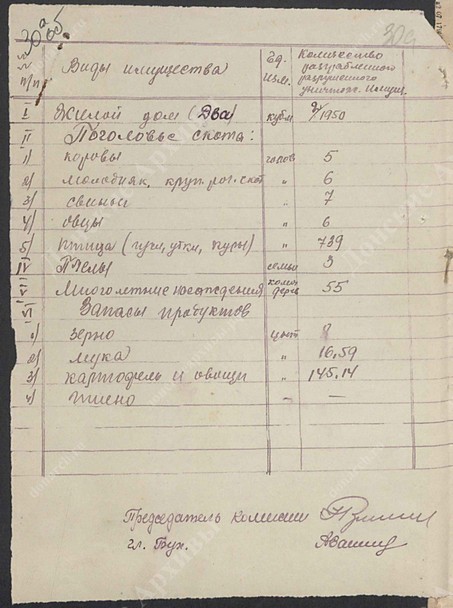 30а об
30а
№ п/п Виды имущества Ед. изм. Количество разграбленного разрушенного уничтож. имущ.
I Жилой дом (Два) кубм 2/1950
II Поголовье скота:
1) коровы голов 5
2) молодняк, круп. рог. скот " 6
3) свиньи " 7
4) овцы " 6
5) птица (гуси, утки, куры) " 739
IV Пчелы семьи 3
VII Многолетние насаждения колич дерев 55
VI Запасы продуктов
1) зерно цент 8
2) мука " 16,59
3) картофель и овощи " 145,14
4) пшено – –
Председатель комиссии
гл. Бух.